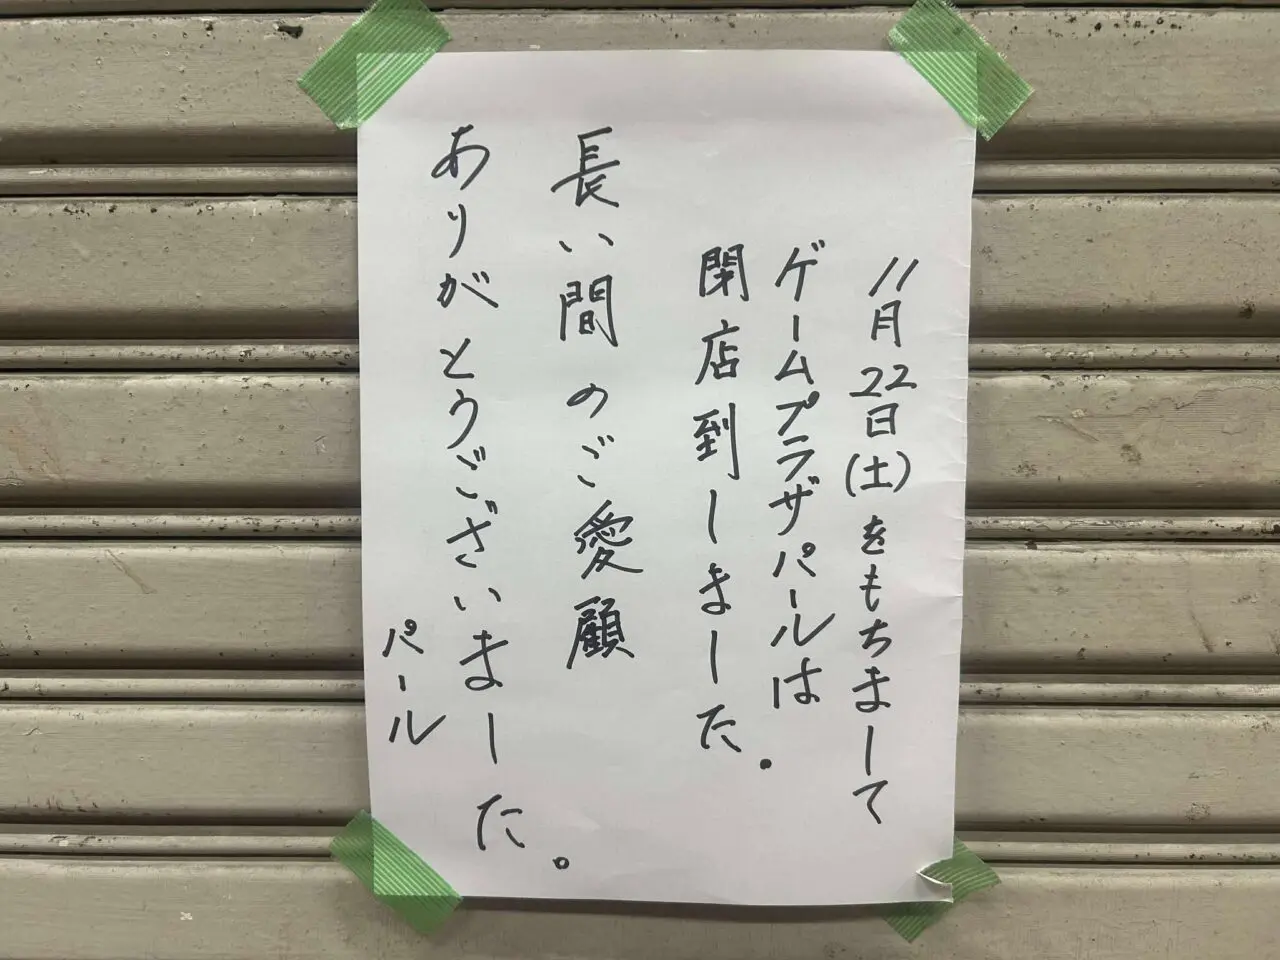 11月22日(土)をもちまして
ゲームプラザパールは
閉店到しました。
長い間のご愛顧
ありがとうございました。
パール